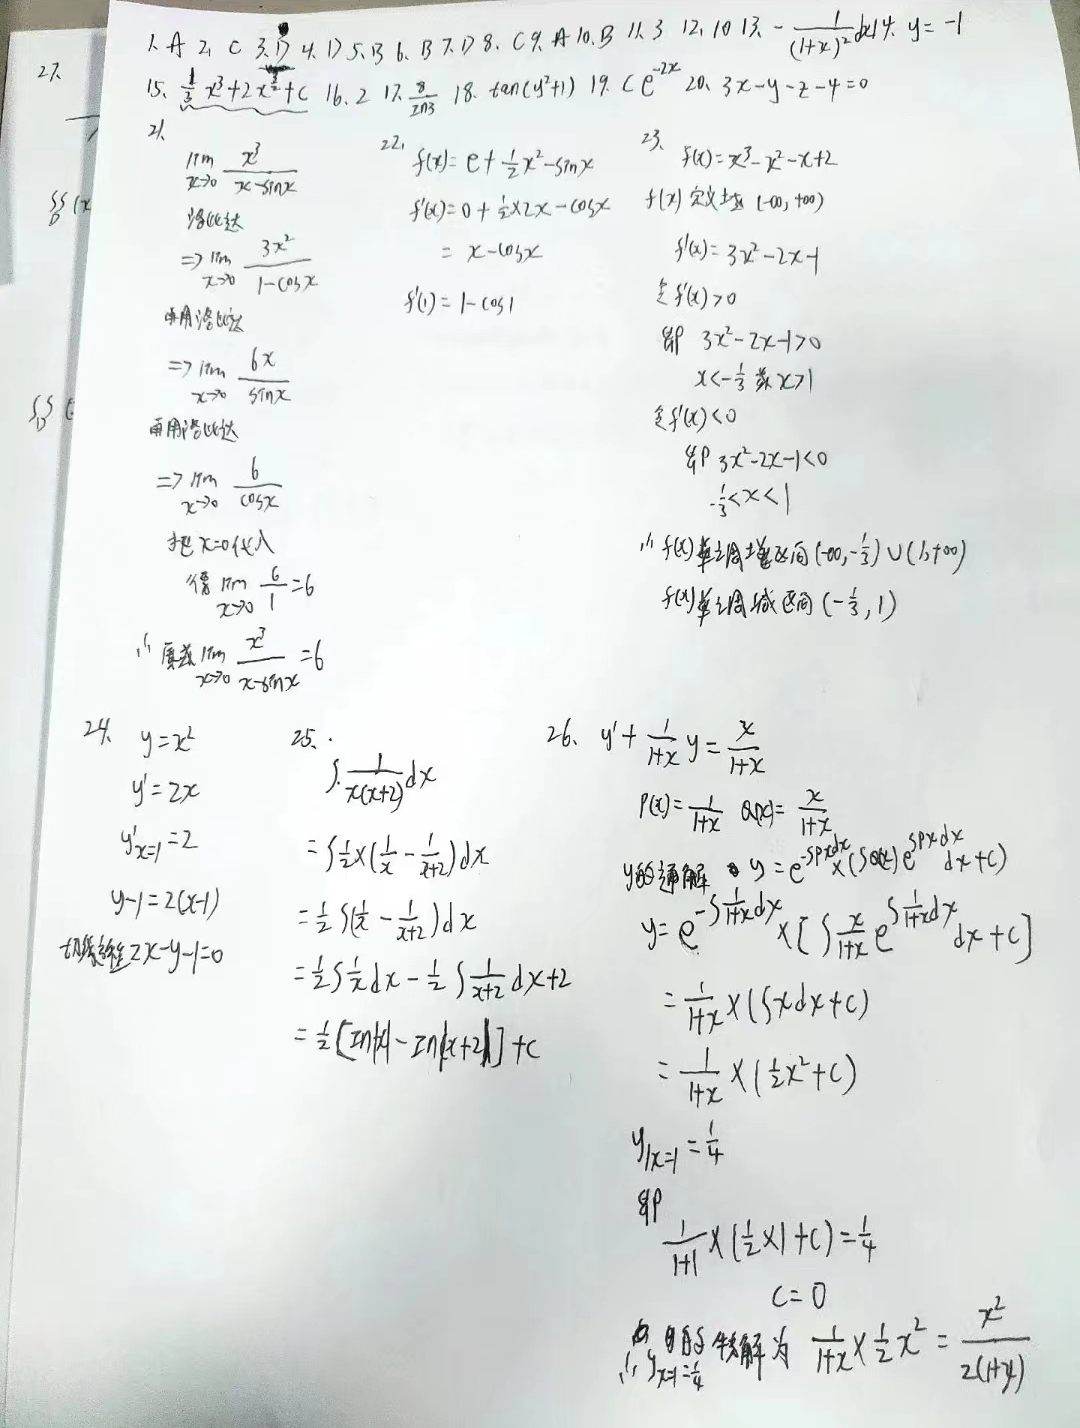 1. A 2. C 3. D 4. D 5. B 6. B 7. D 8. C 9. A 10. B 11. 3 12. 10 13. -1/(1+x)² dx 14. y=-1
15. 1/3 x³+2x^(3/2)+C 16. 2 17. 8/ln3 18. tan(y²+1) 19. Ce^(-2x) 20. 3x-y-z-4=0
21.
lim x→0 x³/(x-sinx)
洛比达
=> lim x→0 3x²/(1-cosx)
再用洛比达
=> lim x→0 6x/sinx
再用洛比达
=> lim x→0 6/cosx
把x=0代入
得 lim x→0 6/1 =6
∴ 原式 lim x→0 x³/(x-sinx) =6
22.
f(x)=e+1/2 x²-sinx
f'(x)=0+1/2×2x-cosx
= x-cosx
f'(1)=1-cos1
23.
f(x)=x³-x²-x+2
f(x)定义域(-∞,+∞)
f'(x)=3x²-2x-1
令f'(x)>0
即 3x²-2x-1>0
x<-1/3 或 x>1
令f'(x)<0
即 3x²-2x-1<0
-1/3<x<1
∴ f(x)单调增区间(-∞,-1/3)∪(1,+∞)
f(x)单调减区间(-1/3,1)
24. y=x²
y'=2x
y'x=1=2
y-1=2(x-1)
切线方程2x-y-1=0
25.
∫ 1/(x(x+2)) dx
=∫1/2×(1/x - 1/(x+2))dx
=1/2∫(1/x - 1/(x+2))dx
=1/2∫1/x dx-1/2∫1/(x+2) dx+2
=1/2[ln|x|-ln|x+2|]+C
26. y'+1/(1+x) y=x/(1+x)
P(x)=1/(1+x) Q(x)=x/(1+x)
y的通解 y=e^(-∫Pxdx)×(∫Q(x)e^(∫Pxdx) dx+C)
y=e^(-∫1/(1+x)dx)×[∫x/(1+x) e^(∫1/(1+x)dx) dx+C]
=1/(1+x)×(∫xdx+C)
=1/(1+x)×(1/2x²+C)
y|x=1=1/4
即
1/(1+1)×(1/2×1+C)=1/4
C=0
∴ yx=1=1/4 的特解为 1/(1+x)×1/2x²=x²/(2(1+x))
27.
∬D (x
∬D (